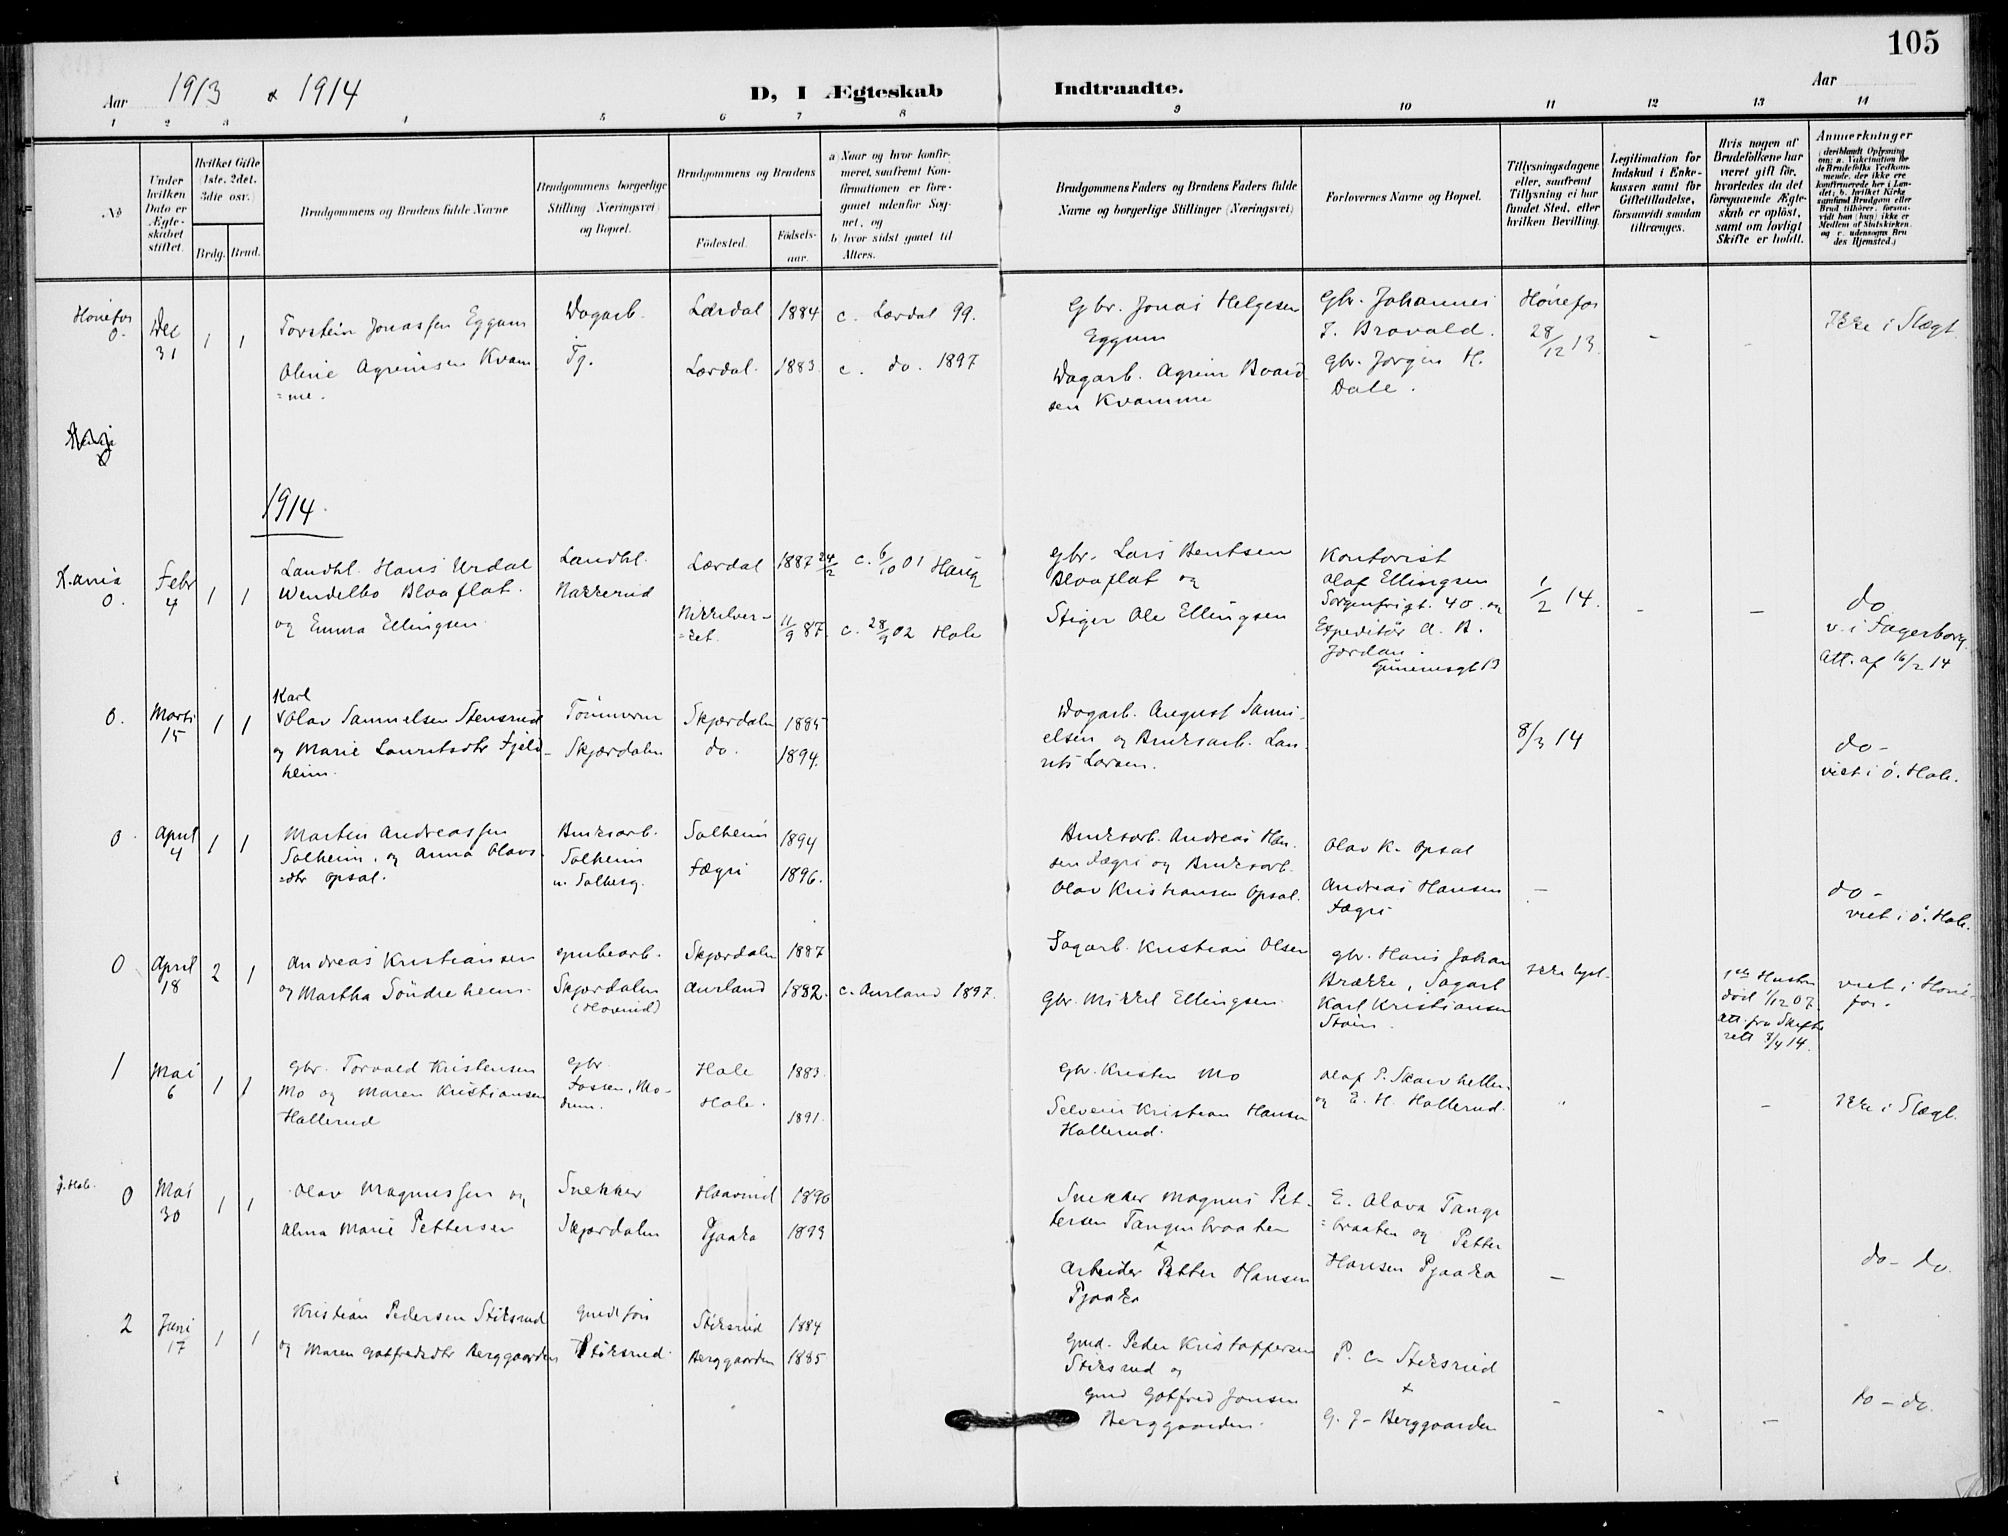 105
Aar 1913 & 1914
D, I Ægteskab Indtraadte.
Aar
1 2 3 4 5 6 7 8 9 10 11 12 13 14
No
Under hvilken Dato er Ægteskabet stiftet.
Hvilket Gifte (1ste, 2det, 3die osv.)
Brdg. Brud.
Brudgommens og Brudens fulde Navne
Brudgommens borgerlige Stilling (Næringsvei) og Bopæl.
Brudgommens og Brudens
Födested.
Födsels-aar.
a) Naar og hvor konfirmeret, saafremt Konfirmationen er foregaaet udenfor Sognet, og
b) hvor sidst gaaet til Alters.
Brudgommens Faders og Brudens Faders fulde Navne og borgerlige Stillinger (Næringsvei)
Forlovernes Navne og Bopæl.
Tillysningsdagene eller, saafremt Tillysning ei har fundet Sted, efter hvilken Bevilling.
Legitimation for Indskud i Enkekassen samt for Giftetilladelse, forsaavidt saadan tiltrænges.
Hvis nogen af Brudefolkene har været gift för, hvorledes da det foregaaende Ægteskab er oplöst, samt om lovligt Skifte er holdt.
Anmærkninger
(deriblandt Oplysning om: a. Vakcination for de Brudefolks Vedkommende, der ikke ere konfirmerede her i Landet; b. hvilket Kirkesamfund Brudgom eller Brud tilhörer, forsaavidt han (hun) ikke er Medlem af Statskirken, og c. udensogns Brudes Hjemsted.)
Hönefos
0. Dec 31 1 1
Torstein Jonassen Eggum
Oline Agrimsen Kvam
=me.
Dagarb.
Tj.
Lærdal 1884 c. Lærdal 99.
Lærdal. 1883. c. do. 1897
Gbr. Jonas Helgesen
Eggum
Dagarb. Agrim Baard
sen Kvamme
Gbr. Johannes
J. Bravold.
Gbr. Jörgen H.
Dale.
Hönefos
28/12 13.
-
Ikke i Slægt
1914.
X.ania
0. Febr 4 1 1
Landhl. Hans Urdal
Wendelbo Blaaflat.
og Emma Ellingsen.
Landhl.
Nakkerud
Lærdal 1887 24/2 c. 6/10 01 Haug
Nikkelver-
=ket. 11/9 87. c. 28/9 02 Hole
Gbr. Lars Bentsen
Blaaflat og
Stiger Ole Ellingsen
Kontorist
Olaf Ellingsen
Sorgenfrigt. 40. og
Expeditör A. B.
Jordan.
1/2 14.
- -
do
v. i Fagerborg.
Att. af 16/2 14
0. Marts 15 1 1
Karl
Olav Samuelsen Stensrud
og Marie Lauritsdtr Fjeld-
heim.
Tömmerm
Skjærdalen
Skjærdalen 1885
do. 1894.
Dagarb. August Samu-
elsen og Bruksarb. Lau-
rits Larsen.
8/3 14
do-
viet i ö. Hole.
0 April 4 1 1
Martin Andreassen
Solheim. og Anna Olavs-
=dtr Opsal.
Bruksarb.
Solheim
u. Solberg.
Solheim 1894
Fægri 1896.
Bruksarb. Andreas Han-
sen Fægri og Bruksarb.
Olav Kristiansen Opsal.
Olav K. Opsal
Andreas Hansen
Fægri
-
do-
viet i ö. Hole.
0 April 18 2 1
Andreas Kristiansen
og Martha Söndreheim.
grubearb.
Skjærdalen
(Hovind)
Skjærdalen 1887
Aurland 1892. c. Aurland 1897.
Sagarb. Kristian Olsen
Gbr. Mikkel Ellingsen.
gbr. Hans Johan
Brække, Sagarb
Karl Kristiansen
Stöin.
ikke lyst.
1ste Hustru
död 1/12 07.
Att. fra Skifte
rett 8/4 14.
viet i Höne-
fos.
1 Mai 6 1 1
Gbr. Torvald Kristensen
Mo og Maren Kristiansen
Hallerud
Gbr
Fossen, Mo-
drum.
Hole 1883.
Hole. 1891.
Gbr. Kristen Mo
Selveier Kristian Hansen
Hallerud.
Olaf P. Skarvhellen
og E. H. Hallerud.
-
Ikke i Slægt.
0 Mai 30 1 1
Olav Magnussen og
Alma Marie Pettersen
Snekker
Skjærdalen
Haavind 1890
Pjaaka 1893
Snekker Magnus Pet-
tersen Tangenbraaten
+
Arbeider Petter Hansen
Pjaaka
E. Olava Tange
=braaten og Petter
Hansen Pjaaka
-
do - do.
2 Juni 17 1 1
Kristian Pedersen Stiksrud
og Maren Gotfredsdtr Berggaarden
Stiksrud.
Stiksrud 1884
Berggaarden 1885
Gmd. Peder Kristoffersen
Stiksrud og
Gmd Gotfred Jonsen
Berggaarden.
P. C. Stiksrud
+
G. J. Berggaarden
- - -
do - do.